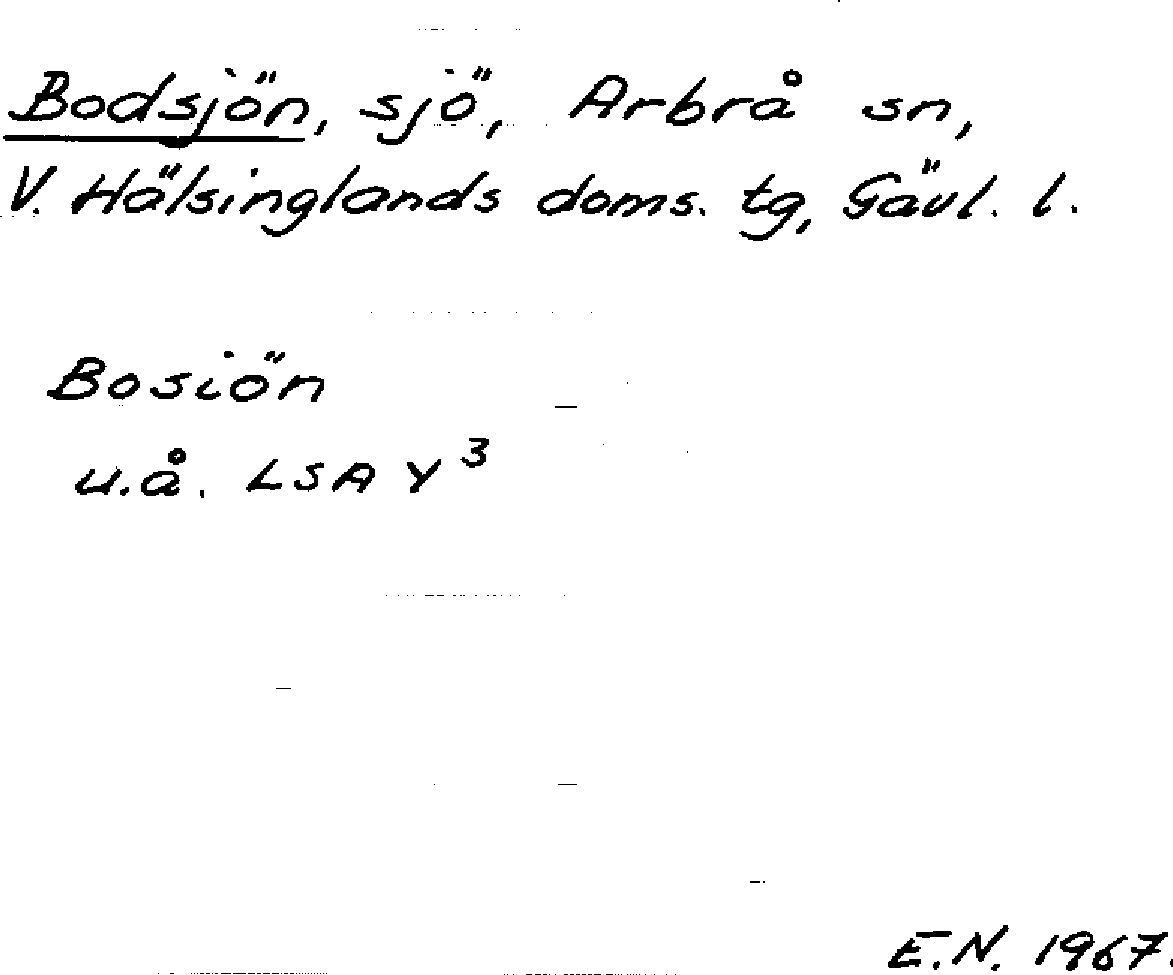 Bodsjön, sjö, Arbrå sn,
V. Hälsinglands doms. tg, Gävl. l.
Bosiön
u.å. LSA Y³
E.N. 1967.